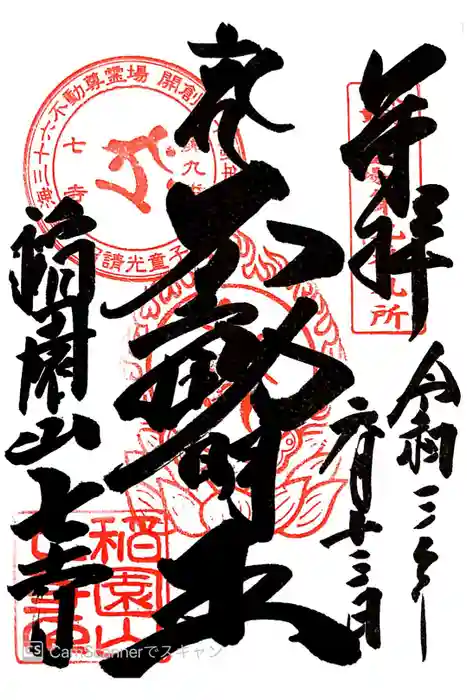 奉拝
令和三年
六月十三日
不動明王
稲園山七寺
三十六不動尊霊場 開創
七寺
請光童子
九
所
稲園山
CS CamScannerでスキャン